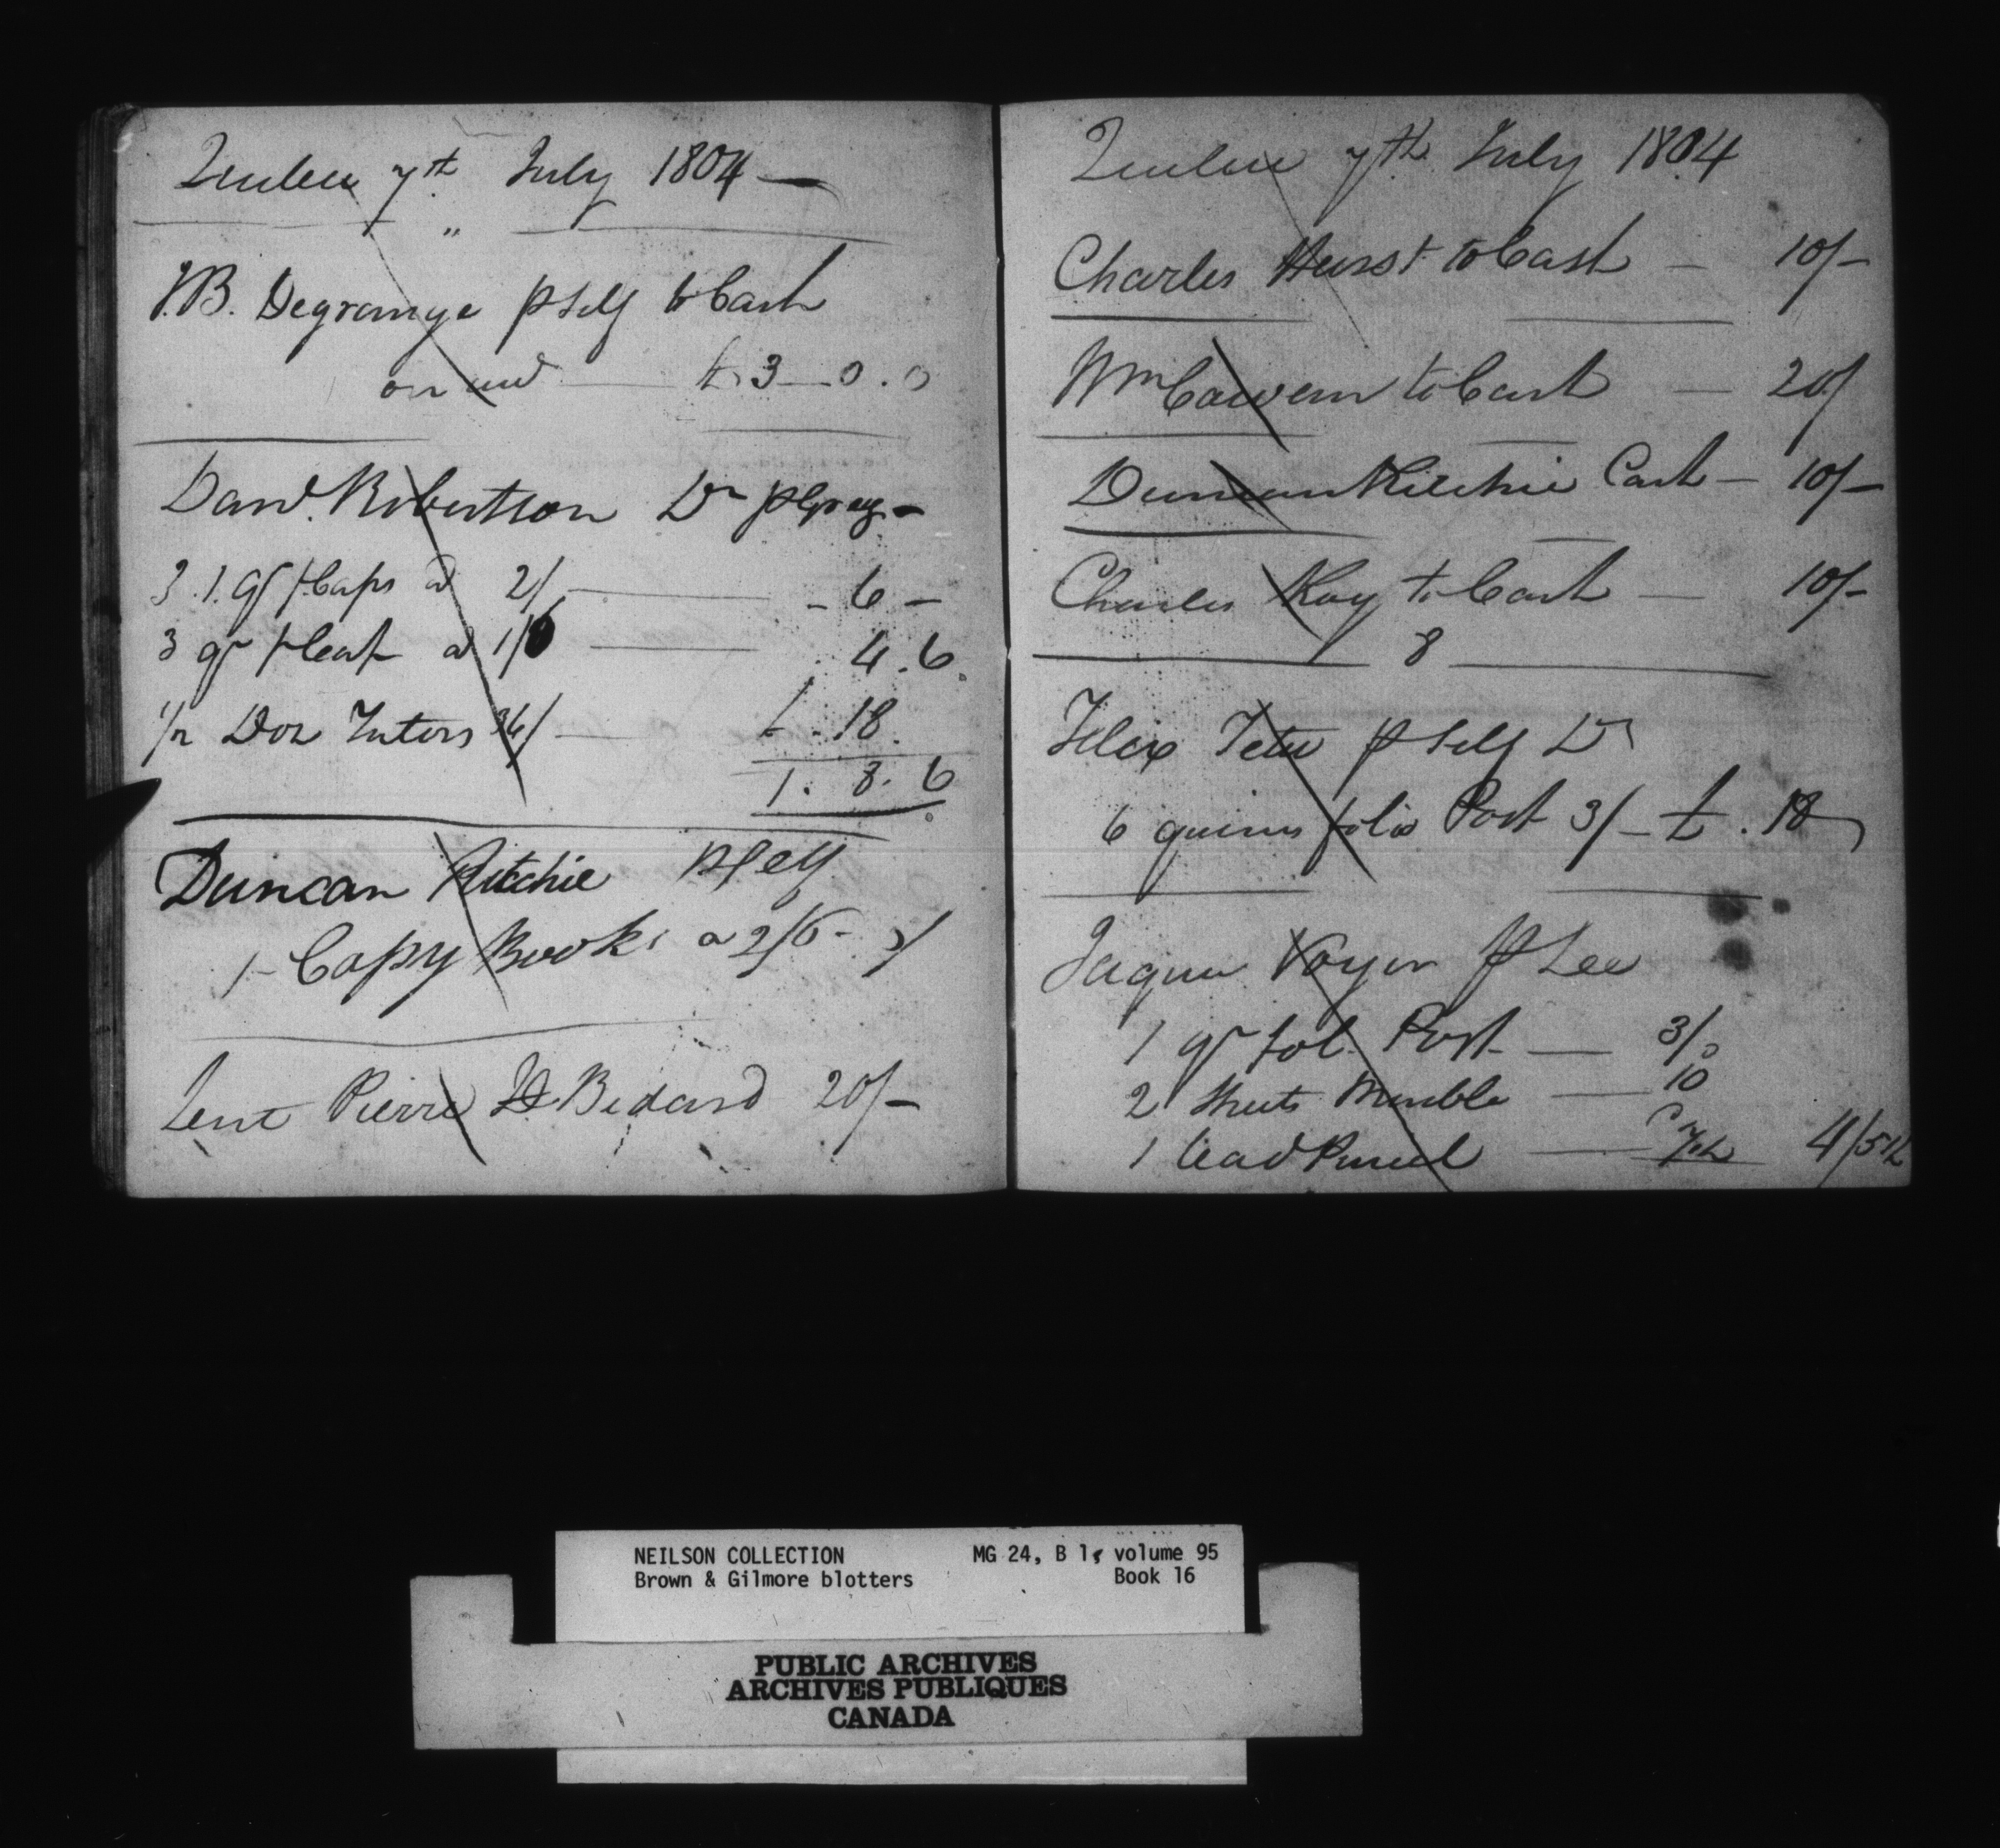 Quebec 7th July 1804 —
"
J.B. Degrange p self to Cash
on acct — £ 3 — 0 . 0
Davd. Robertson Dr p Gray —
3 . 1. qr f Caps a 2/ — - 6 -
3 qr a 1/6 — . 4 . 6
1/2 Doz Tutors 36/ — £ . 18 .
1 . 8 . 6
Duncan Ritchie p self
1 - Copy Book a 2/6 -
Lent Pierre Bedard 20/-
Quebec 7th July 1804
Charles Hurst to Cash — 10/-
Wm to Cash — 20/
Duncan Ritchie Cash — 10/-
Charles Kay to Cash — 10/-
8
Felix Tetu p self Dr
6 quires folio Post 3/ - £ . 18
Jaque Voyer p Lee
1 qr fol. Post — 3/
2 Sheets Marble — 10
1 Lead Pencil — 4/5 1/2
NEILSON COLLECTION MG 24, B 1, volume 95
Brown & Gilmore blotters Book 16
PUBLIC ARCHIVES
ARCHIVES PUBLIQUES
CANADA